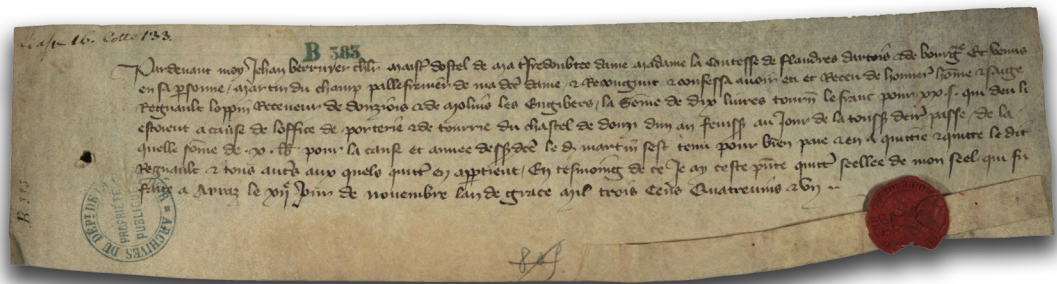 Liasse 16. Cotte 133.
B 383
Pardevant moy Jehan berruyer chlr maist dostel de ma tsredoubtee dame madame la Contesse de flandres dartois & de bourgne Est venus
en sa psonne / martin du champ pallefrenier de ma dce dame & Recongnut & confessa avoir eu et Receu de honnor home & saige
Regnault Receveur de donziois & de les Engibers / la some de dix livres tourn le franc pour xx s. qui deu li
estoient a cause de loffice de porterie & de tourrie du chastel de dun an feniss au Jour de la touss derr passe / de la
quelle some de x. lt pour la cause et annee dessdce le d martin sest tenu pour bien paie & en a quittie & quitte le dit
Regnault & tous autres aux quels quitt en apptient / En tesmoing de ce Je ay ceste pnte quitt seellee de mon seel qui fu
faite a Arraz le Jour de novembre lan de grace mil trois Cens Quatrevins & un
ARCHIVES DE DEPT DE
PROPRIETE PUBLIQUE
B 383